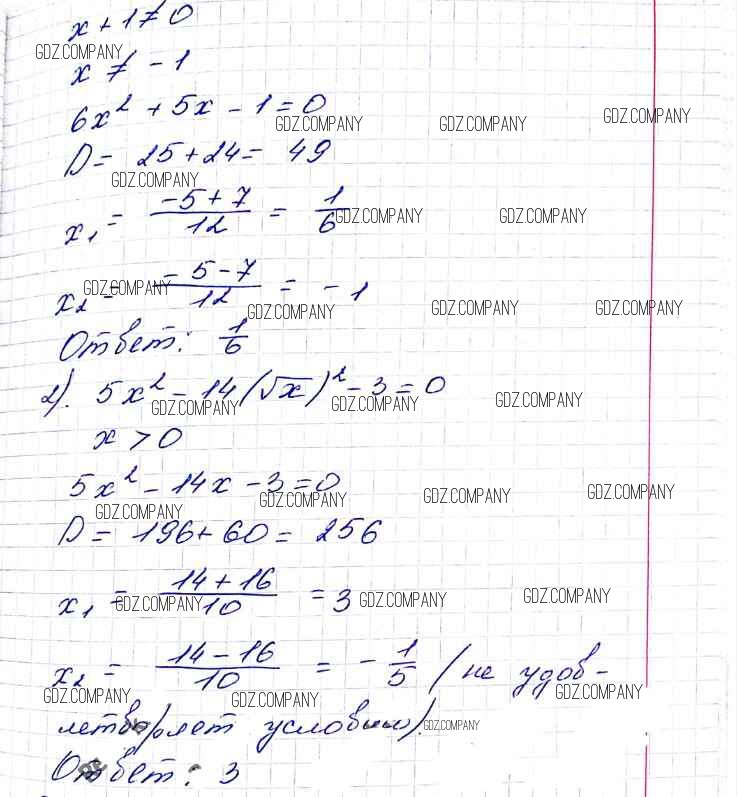 x + 1 ≠ 0
GDZ.COMPANY
x ≠ - 1
6x² + 5x - 1 = 0
GDZ.COMPANY GDZ.COMPANY GDZ.COMPANY
D = 25 + 24 = 49
GDZ.COMPANY
x₁ = (-5 + 7)/12 = 1/6
GDZ.COMPANY GDZ.COMPANY
x₂ = (-5 - 7)/12 = - 1
GDZ.COMPANY GDZ.COMPANY GDZ.COMPANY GDZ.COMPANY
Ответ: 1/6
2). 5x² - 14(√x)² - 3 = 0
GDZ.COMPANY GDZ.COMPANY GDZ.COMPANY
x > 0
5x² - 14x - 3 = 0
GDZ.COMPANY GDZ.COMPANY GDZ.COMPANY GDZ.COMPANY
D = 196 + 60 = 256
x₁ = (14 + 16)/10 = 3
GDZ.COMPANY GDZ.COMPANY GDZ.COMPANY
x₂ = (14 - 16)/10 = - 1/5 (не удов-
GDZ.COMPANY GDZ.COMPANY GDZ.COMPANY
летворяет условию).
GDZ.COMPANY
Ответ: 3